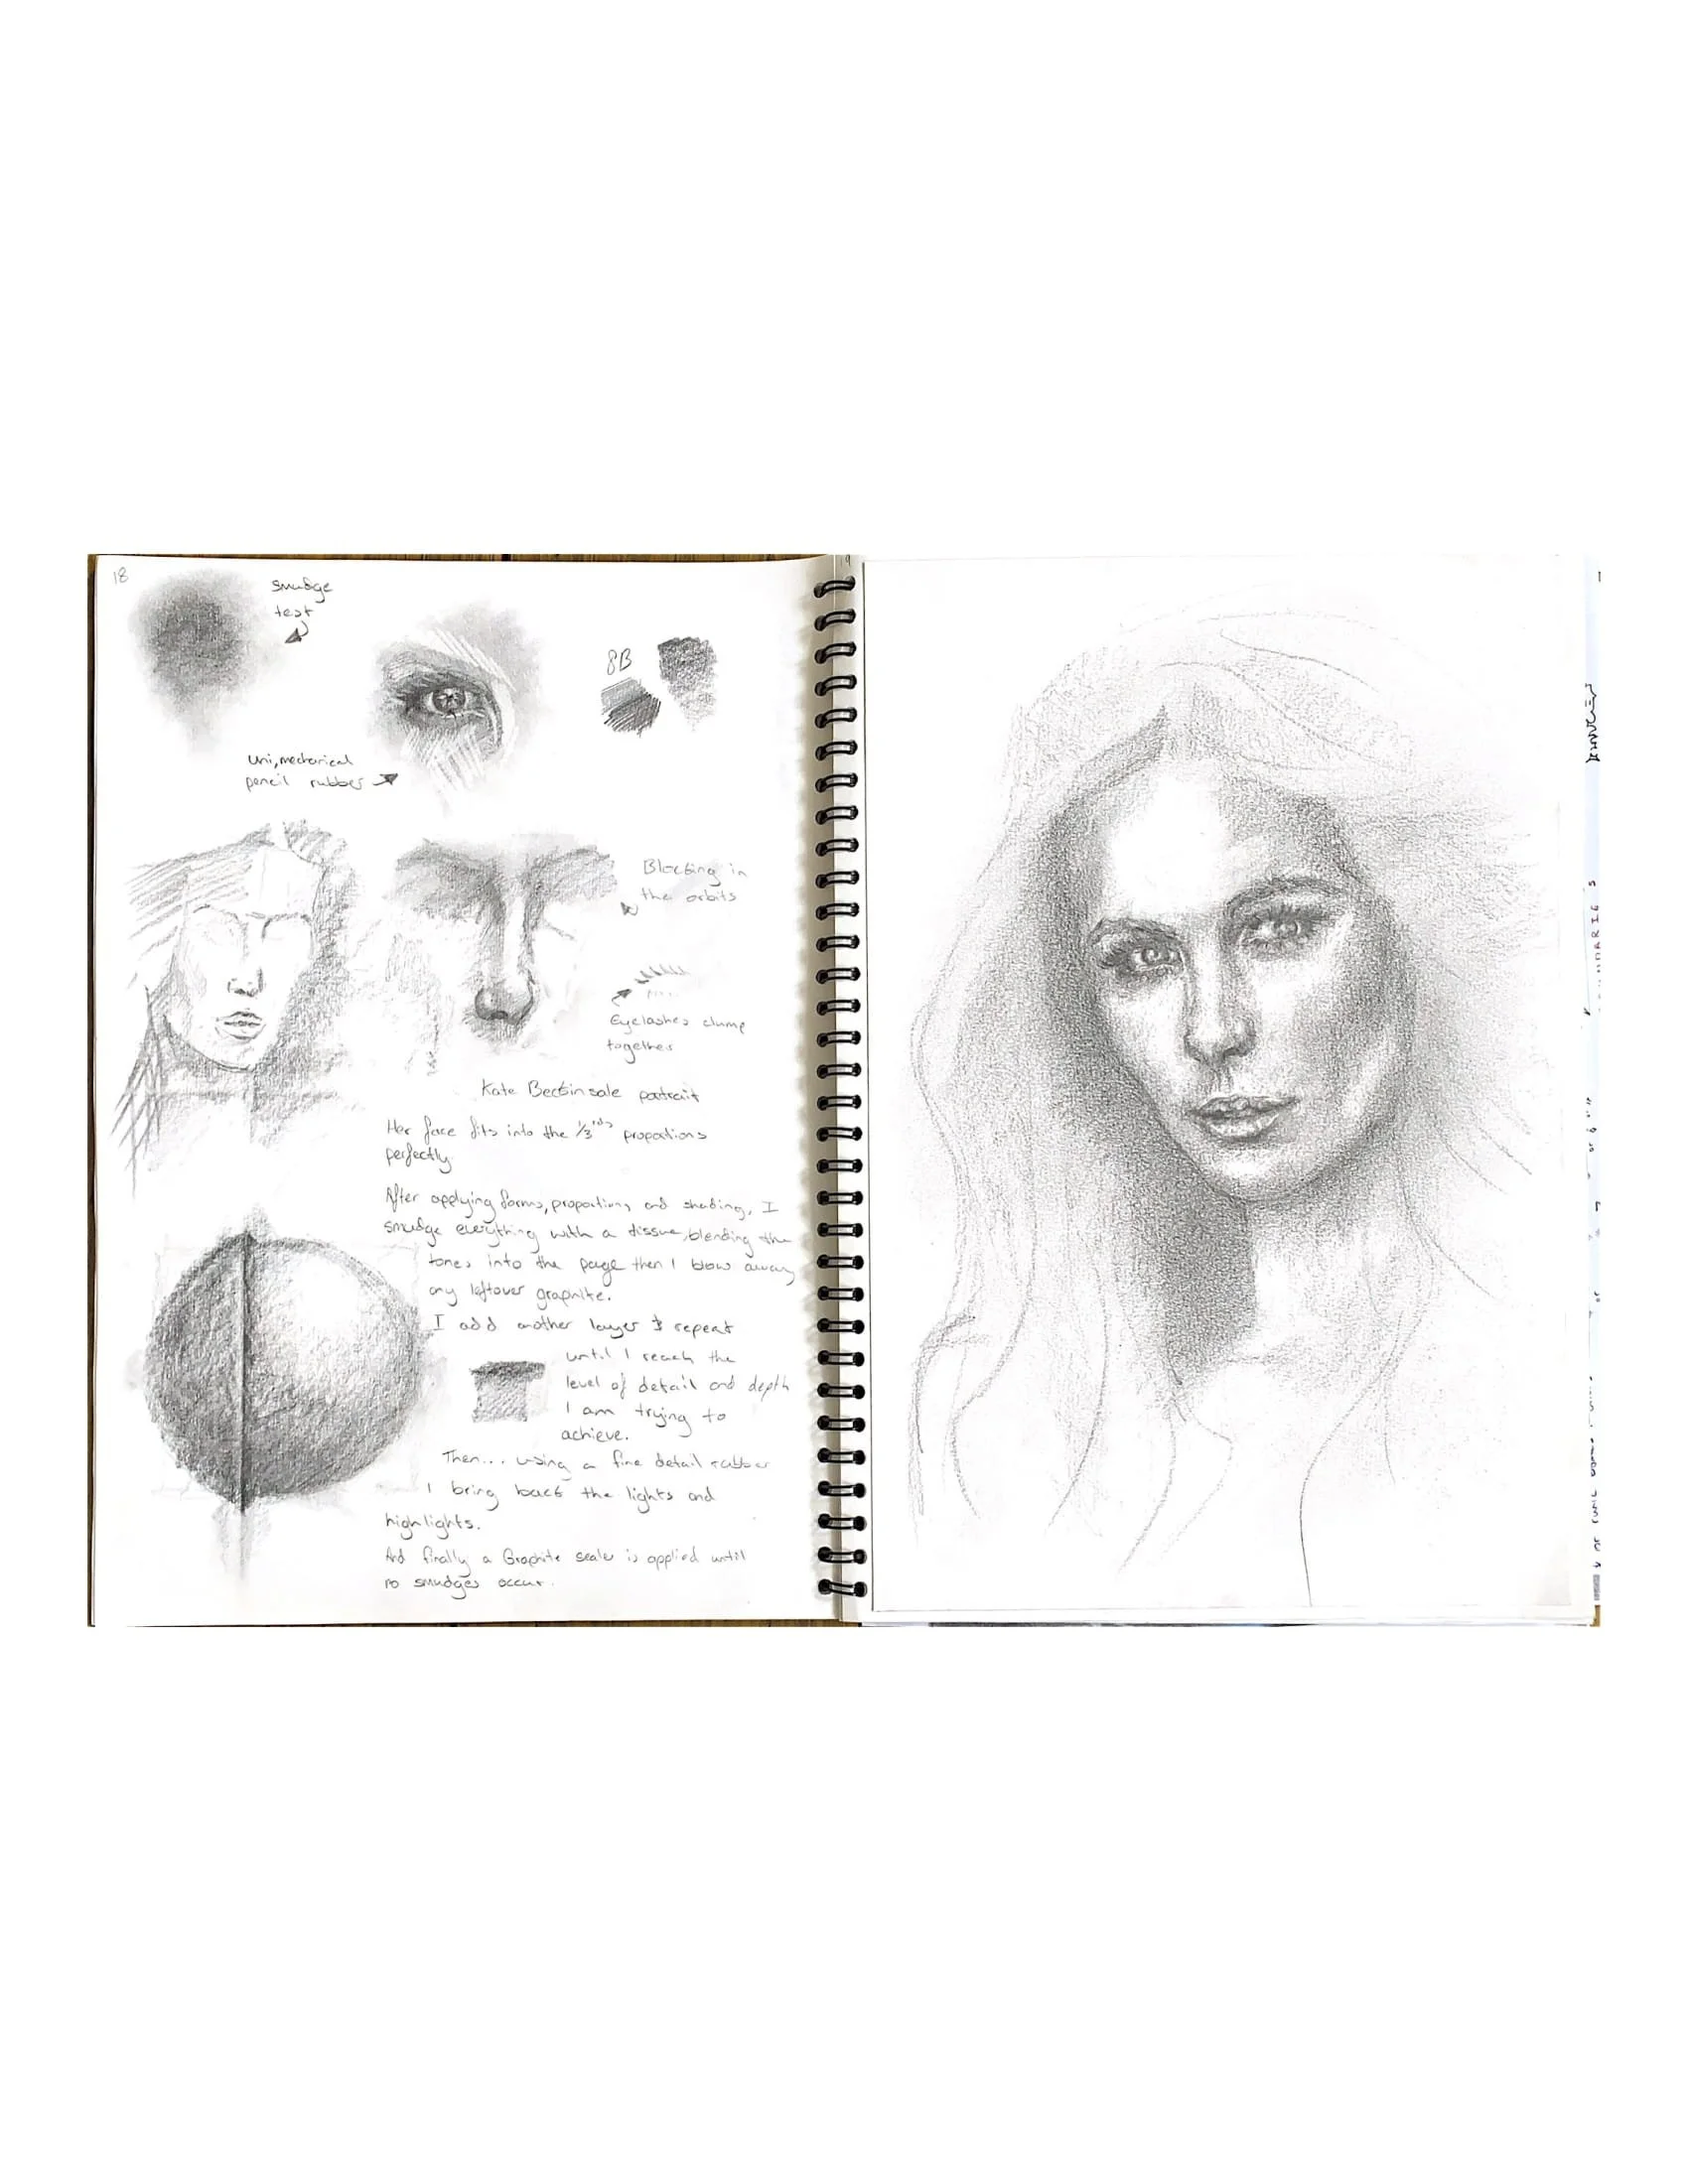 18
smudge
test
8B
uni, mechanical
pencil rubber
Blocking in
the orbits
Eyelashes clump
together
Kate Beckinsale portrait
Her face fits into the 1/3rds proportions
perfectly
After applying forms, proportions and shading, I
smudge everything with a tissue, blending the
tones into the page then I blow away
any leftover graphite.
I add another layer & repeat
until I reach the
level of detail and depth
I am trying to
achieve.
Then... using a fine detail rubber
I bring back the lights and
highlights.
And finally a Graphite sealer is applied until
no smudges occur.
19